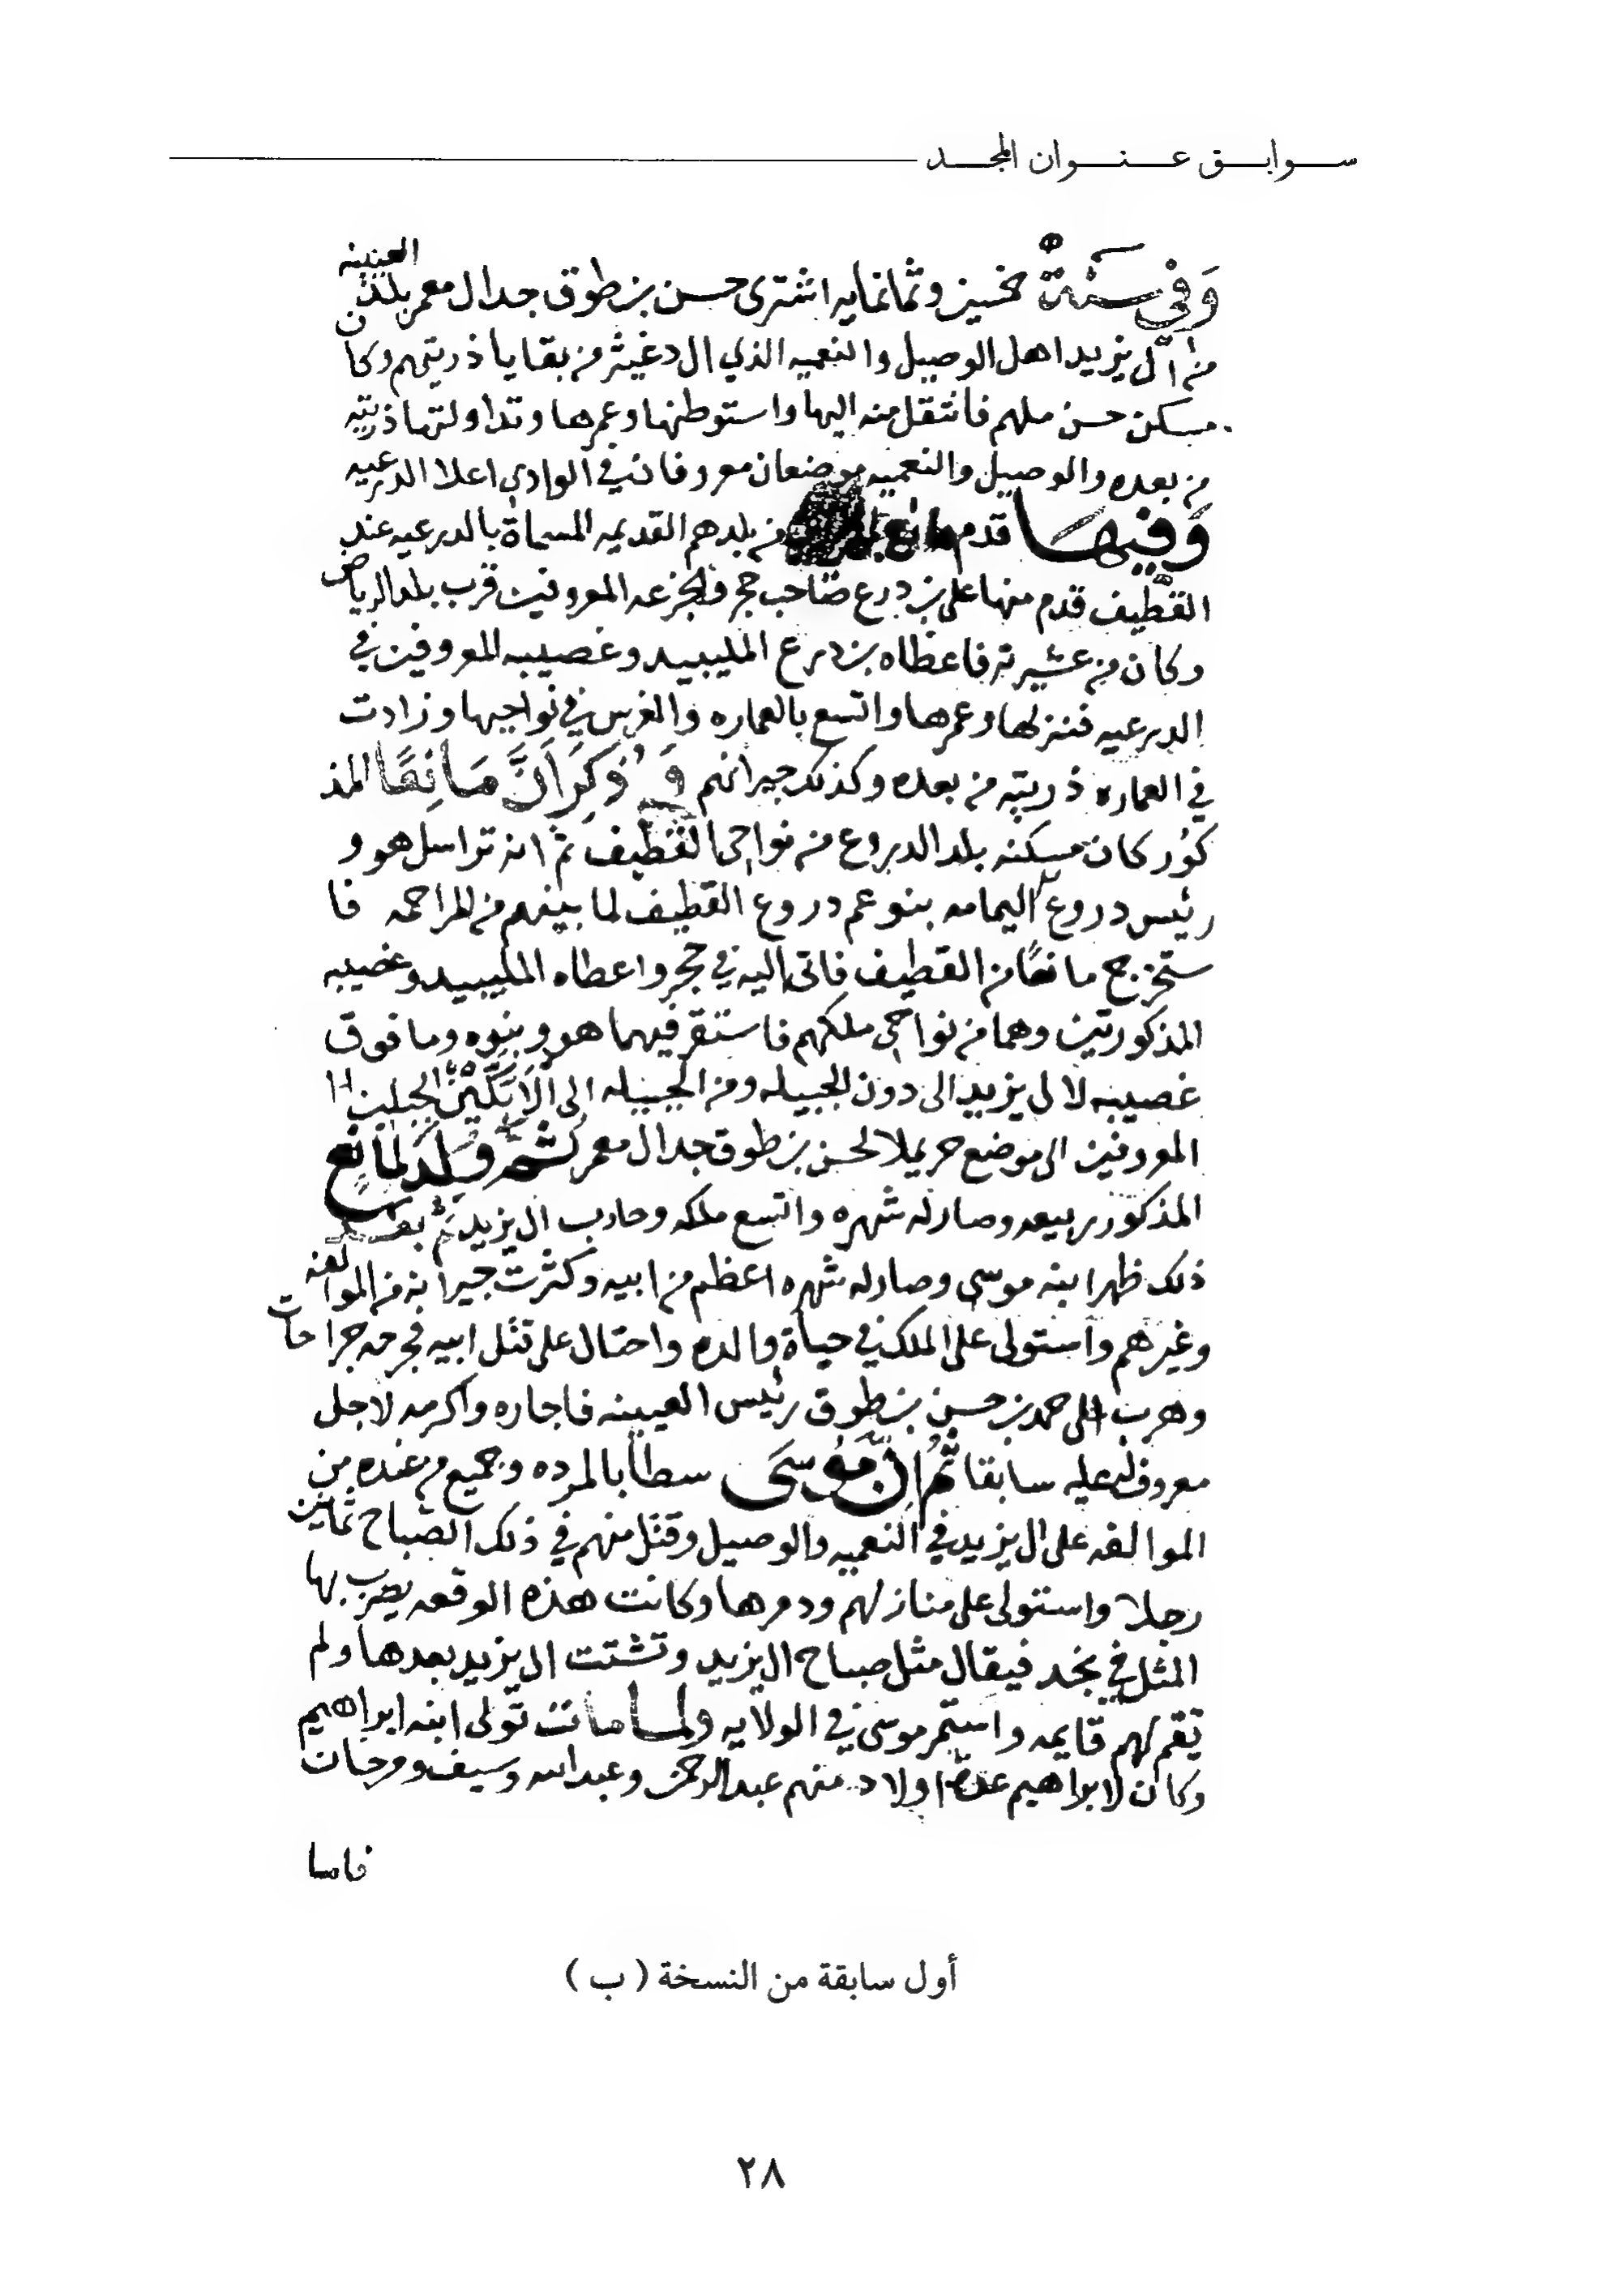 سوابق عنوان المجد
وَفِي سَنَةْ خمسين وثمانمايه اشترى حسن بن طوق جد ال معمر بلد العيينه
من ال يزيد اهل الوصيل والنعميه الذي ال دغيثر من بقايا ذريتهم وكان
مسكن حسن ملهم فانتقل منه اليها واستوطنها وعمرها وتداولتها ذريته
من بعده والوصيل والنعميه موضعان معروفان في الوادي اعلا الدرعيه
وَفيهَا قدم مانع من بلدهم القديمه المسماة بالدرعيه عند
القطيف قدم منها على بن درع صاحب حجر والجزعه المعروفين قرب بلد الرياض
وكان من عشيرته فاعطاه بن درع المليبيد وغصيبه المعروفين في
الدرعيه فنزلها وعمرها واتسع بالعماره والغرس في نواحيها وزادت
في العماره ذريته من بعده وكذلك جيرانهم وَذُكِرَ اَنَّ مَانِعًا المذ
كور كان مسكنه بلد الدروع من نواحي القطيف ثم انه تراسل هو و
رئيس دروع اليمامه بنو عم دروع القطيف لما بينهم من المراحمه فا
ستخرج مانعًا من القطيف فاتى اليه في حجر واعطاه المليبيد وغصيبه
المذكورتين وهما من نواحي ملكهم فاستقر فيهما هو وبنوه وما فوق
غصيبه لال يزيد الى دون الجبيله ومن الجبيله الى الابكين الجبلين
المعروفين الى موضع حريملا لحسن بن طوق جد ال معمر ثم ولد لمانع
المذكور ربيعه وصار له شهره واتسع ملكه وحارب ال يزيد ثم بعد
ذلك ظهر ابنه موسى وصار له شهره اعظم من ابيه وكثرت جيرانه من الموالفه
وغيرهم واستولى على الملك في حياة والده واحتال على قتل ابيه فجرحه جراحات
وهرب الى حمد بن حسن بن طوق رئيس العيينه فاجاره واكرمه لاجل
معروف له عليه سابقا ثم ان مُوسَى سطا بالمرده وجميع من عنده من
الموالفه على ال يزيد في النعميه والوصيل وقتل منهم في ذلك الصباح ثمانين
رجلا واستولى على منازلهم ودمرها وكانت هذه الوقعه يضرب بها
المثل في نجد فيقال مثل صباح ال يزيد وتشتت ال يزيد بعدها ولم
تقم لهم قايمه واستمر موسى في الولايه ولما مات تولى ابنه ابراهيم
وكان لابراهيم عدة اولاد منهم عبدالرحمن وعبدالله وسيف ومرخان
فاما
أول سابقة من النسخة ( ب )
٢٨